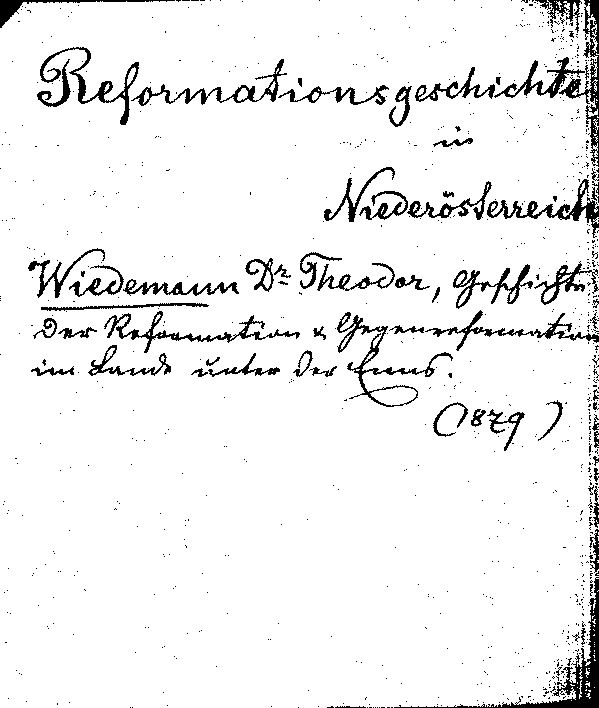 Reformationsgeschichte
in
Niederösterreich
Wiedemann Dr. Theodor, Geschichte
der Reformation & Gegenreformation
im Lande unter der Enns.
(1879)